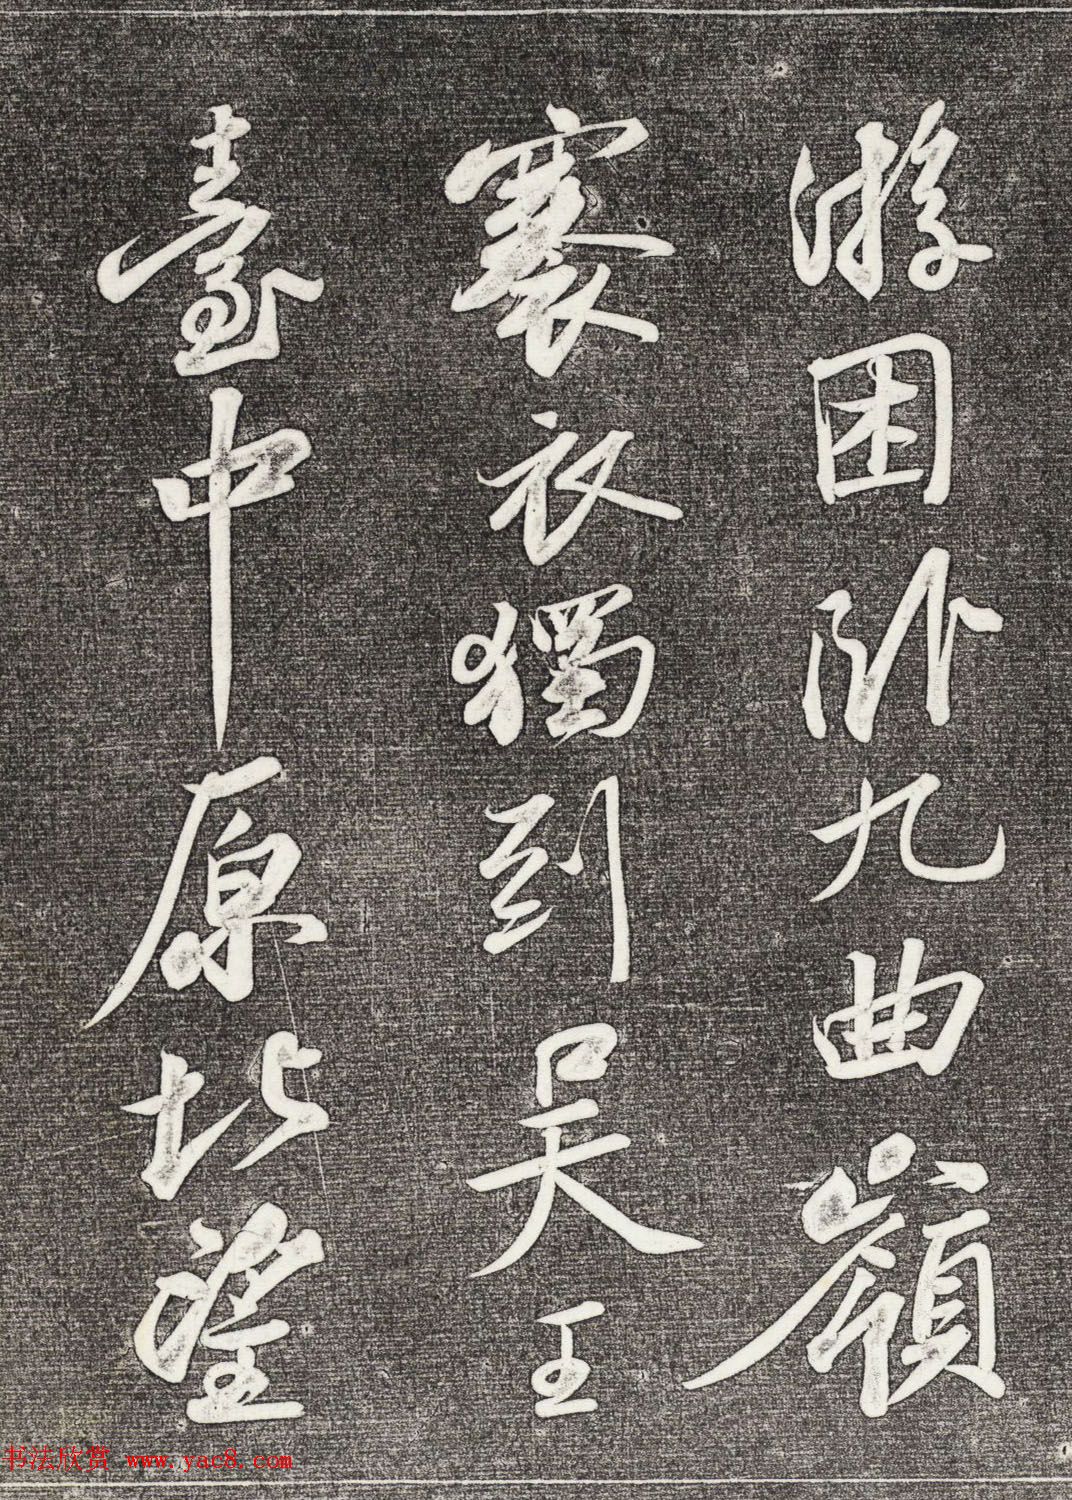 游困卧九曲嶺
褰衣獨到吴王
臺中原北望
书法欣赏 www.yac8.com